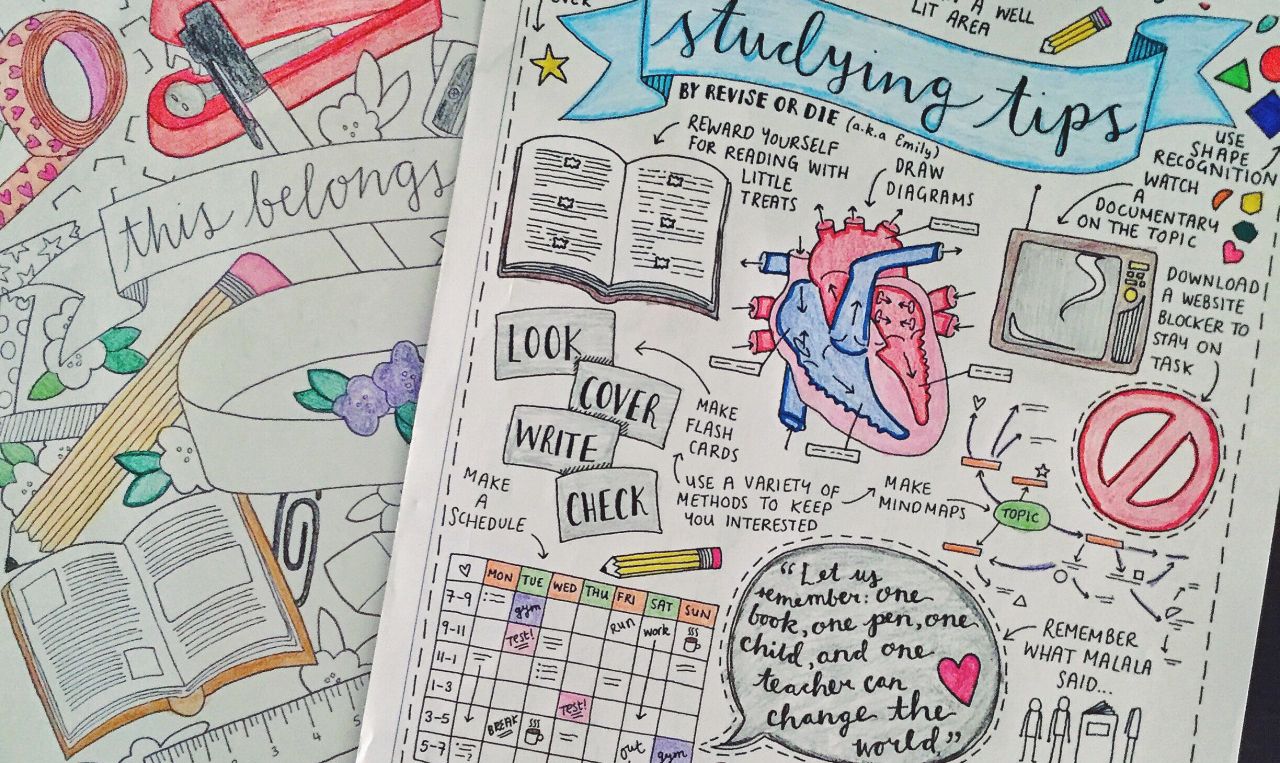 this belongs
3
4
5
OVER
A WELL
LIT AREA
studying tips
BY REVISE OR DIE (a.k.a Emily)
REWARD YOURSELF
FOR READING WITH
LITTLE
TREATS
DRAW
DIAGRAMS
USE
SHAPE
RECOGNITION
WATCH
A
DOCUMENTARY
ON THE TOPIC
DOWNLOAD
A WEBSITE
BLOCKER TO
STAY ON
TASK
LOOK
COVER
WRITE
CHECK
MAKE
FLASH
CARDS
USE A VARIETY OF
METHODS TO KEEP
YOU INTERESTED
MAKE
MINDMAPS
TOPIC
MAKE
A
SCHEDULE
MON TUE WED THU FRI SAT SUN
7-9 gym
9-11 Test! run work
11-1
1-3 Test!
3-5 BREAK
5-7 out gym
"Let us
remember: one
book, one pen, one
child, and one
teacher can
change the
world."
REMEMBER
WHAT MALALA
SAID...